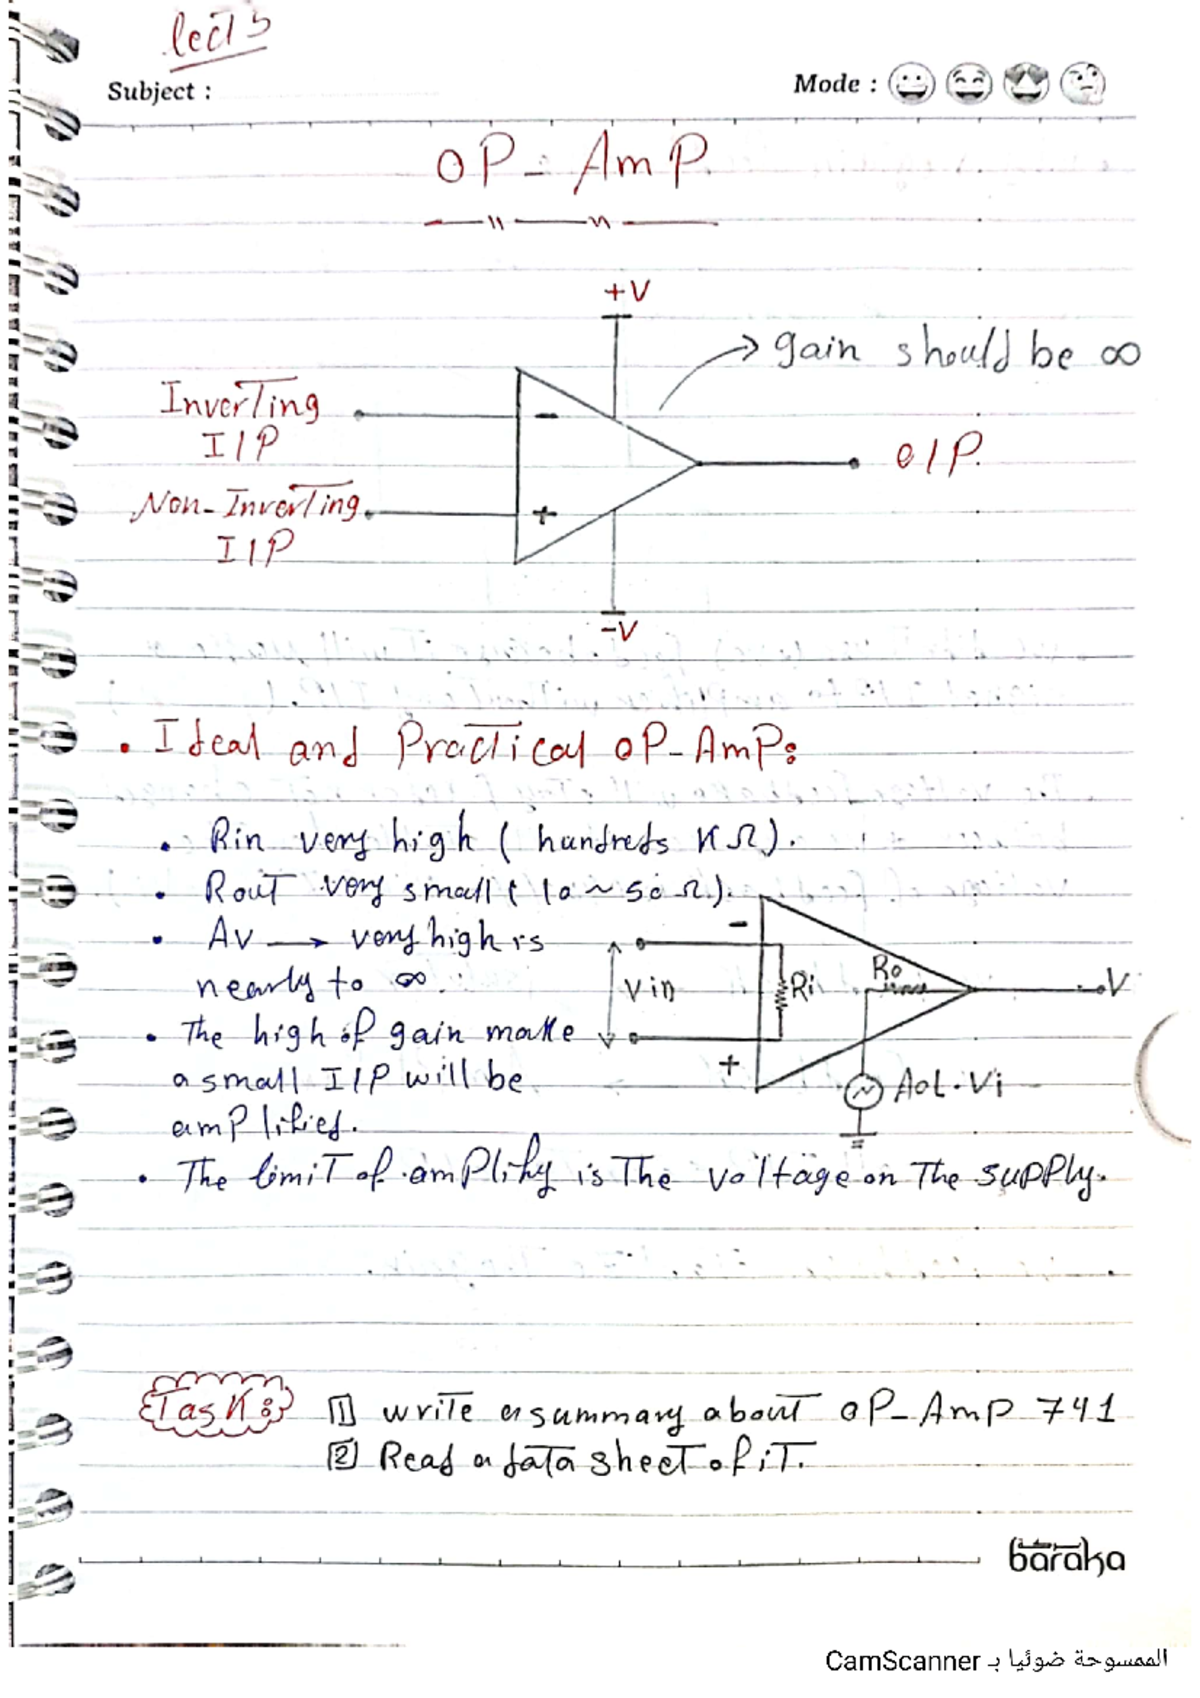 Lect 5
Subject :
Mode :
OP-Amp
+V
gain should be ∞
Inverting
I/P
-
O/P.
Non-Inverting
I/P
+
-V
• Ideal and Practical OP-Amp:
• Rin very high ( hundreds KΩ).
• Rout very small ( 10 ~ 50 Ω).
• Av → very high is
nearly to ∞.
• The high of gain make
a small I/P will be
amplified.
-
Vin
Ri
Ro
V
+
AOL.Vi
• The limit of amplify is The voltage on The supply.
Task: 1 write a summary about OP-Amp 741
2 Read a data sheet of it.
baraka
الممسوحة ضوئيا بـ CamScanner